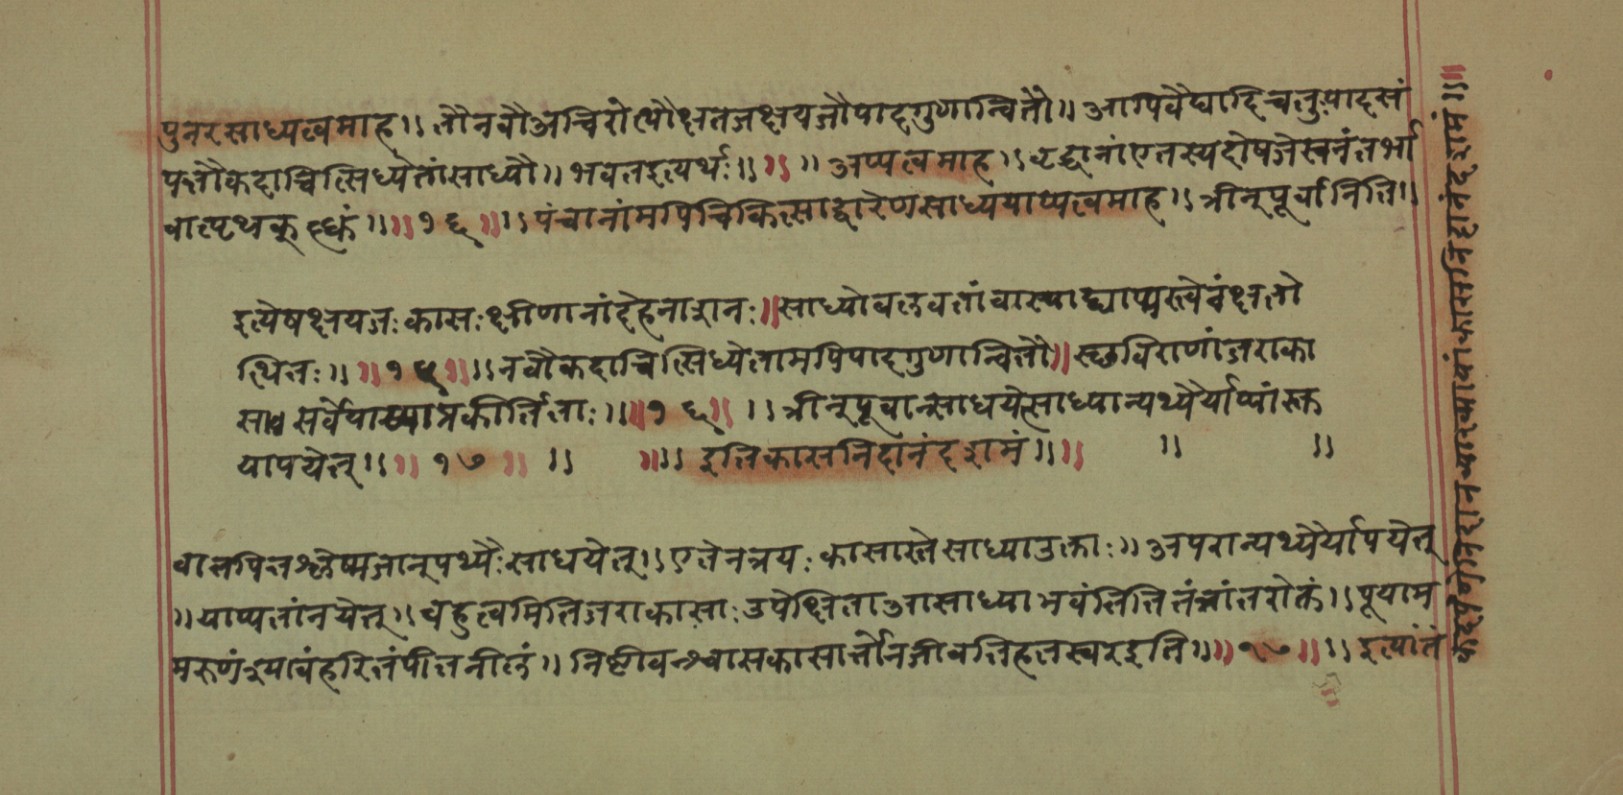 पुनरसाध्यत्वमाह॥ तौनवौअचिरोत्थौक्षतजक्षयजौपादगुणान्वितौ॥ अापिवैद्यादिचतुःपादसं
पत्तौकदाचित्सिध्येतांसाध्यौ॥ भवतइत्यर्थः॥ ॥ ॥ अप्पत्वमाह। वृद्धानांएतस्यदोषजेस्वनंतर्भा
वात्पृथक् ॥ ॥१६॥ ॥ पंचानांमपिचिकित्साद्वारेणसाध्ययाप्यत्वमाह॥ त्रीन्पूर्वानिति॥
इत्येषक्षयजःकासःक्षीणानांदेहनाशनः॥ साध्योबलवतांवास्याद्याप्यस्त्वेवंक्षतो
त्थितः॥ ॥१५॥ ॥ नवौकदाचित्सिध्येतामपिपादगुणान्वितौ॥ स्छविराणांजराका
सः सर्वेयाप्याप्रकीर्तिताः॥ ॥१६॥ ॥ त्रीन्पूर्वान्साधयेत्साध्यान्पथ्यैर्याप्यांस्तु
यापयेत्॥ ॥१७॥ ॥ ॥॥ इतिकासनिदानंदशमं॥ ॥ ॥ ॥
वातपित्तश्लेष्मजान्पथ्यैःसाधयेत्॥ एतेनत्रयःकासास्तेसाध्याउक्ताः॥ अपरान्पथ्यैर्यापयेत्
॥ याप्यतांनयेत्॥ बहुत्वमितिजराकासाः उपेक्षिताअसाध्याभवंतितितंत्रांतरोक्तं॥ पूयाम
मरुणंश्यावंहरितंपीतनीलं॥ निष्ठीवन्श्वासकासार्त्तोनजीवतिहतस्वरइति॥ ॥१७॥ ॥ इत्यांतं